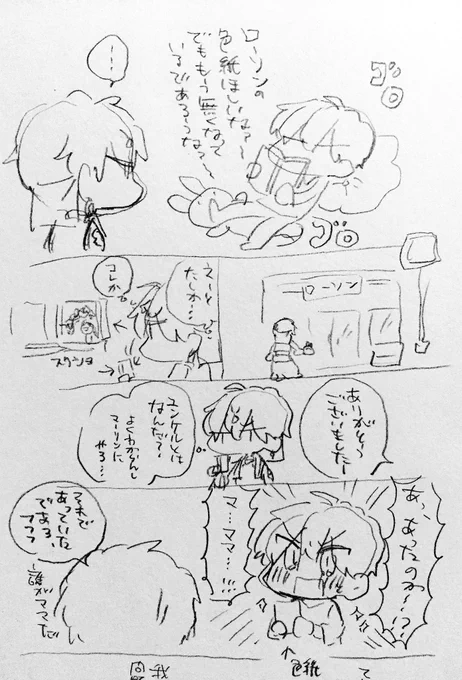 ゴロ
ローソンの
色紙ほしいなァ〜
でももう無くなって
いるであろうなァ〜
ゴロ
…
ローソン
えーと
たしか…
コレかな
スクショ
ありがとう
ございましたー
ユンケルとは
なんだ?
よくわからんし
マーリンに
やろ…
あっ、あったのか!?
マ…ママ…!!!
色紙
それで
あっていた
である、
ママ
誰がママだ